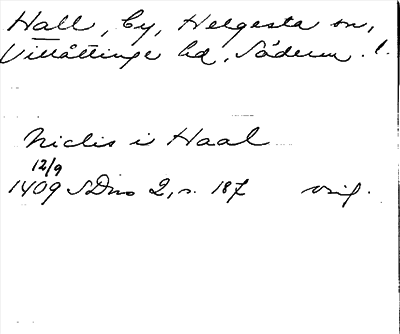 Hall, by, Helgesta sn,
Villåttinge hd, Söderm. l.
Niclis i Haal
12/9
1409 SDns 2, s. 187 orig.